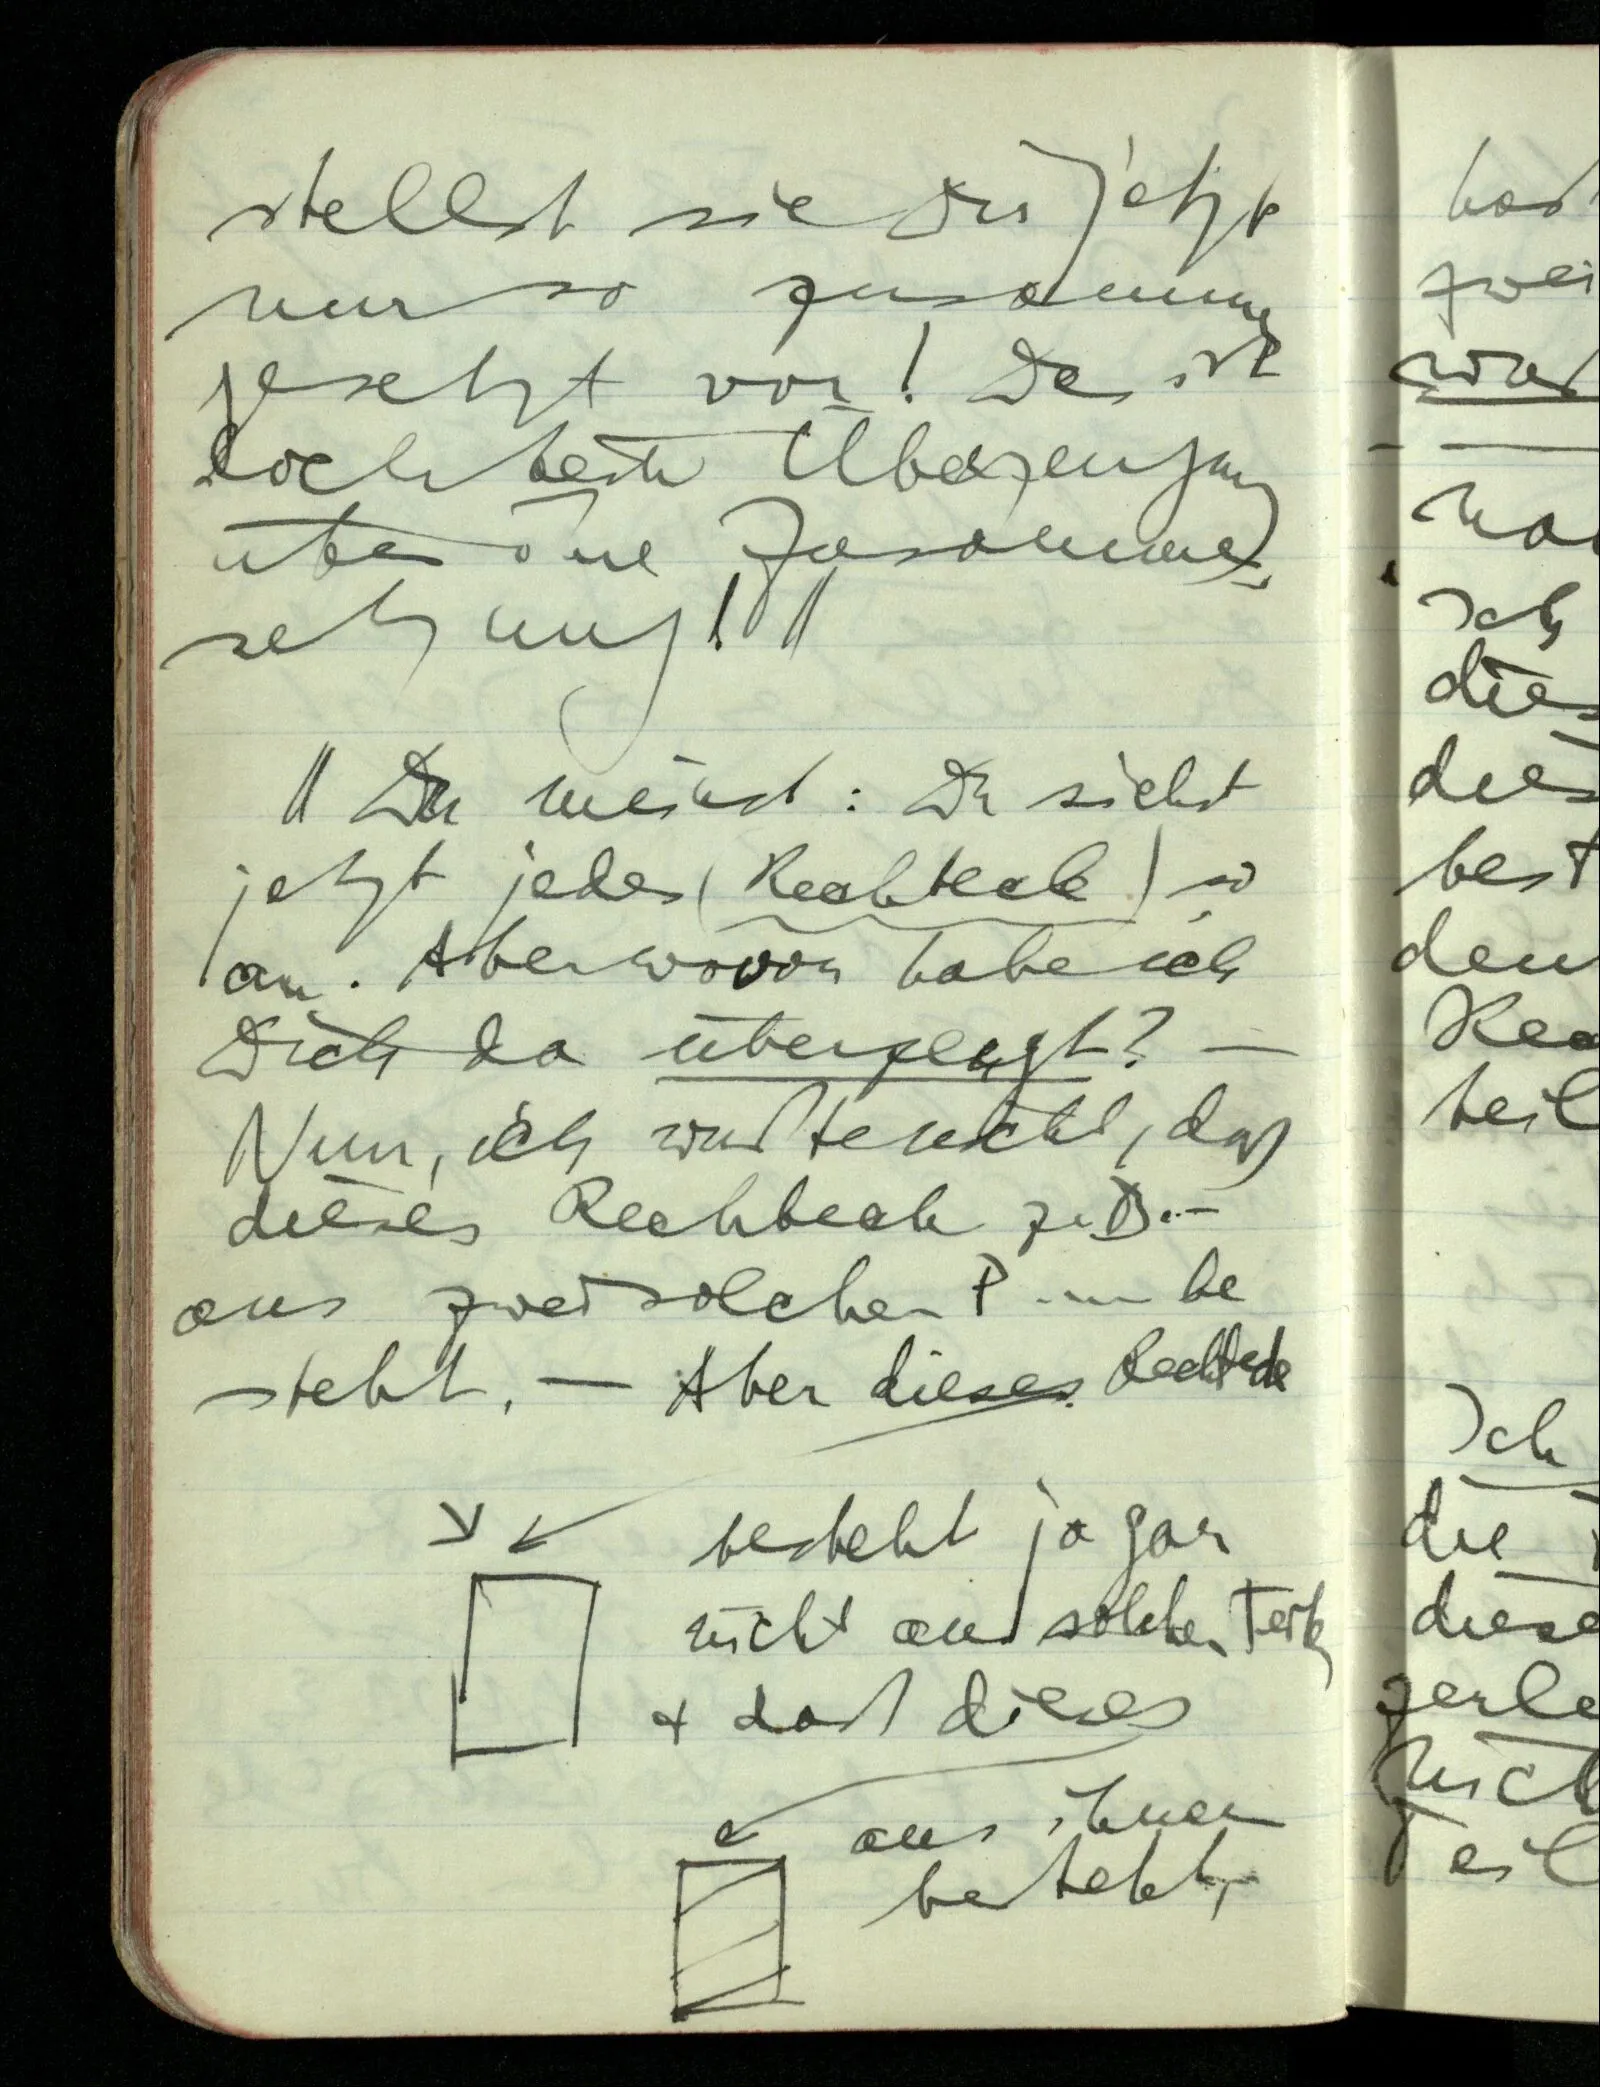 stellst sie Dir jetzt
nur so zusammen
gesetzt vor! Das ist
doch keine Überzeugung
über eine Zusammen-
setzung! //
// Du meinst: Du siehst
jetzt jedes (Rechteck) so
an. Aber wovon habe ich
Dich da überzeugt? —
Nun, ich wußte nicht, daß
dieses Rechteck z.B. –
aus zwei solchen P.... be
steht. — Aber dieses Rechteck
besteht ja gar
nicht aus solchen Teilen
& daß dieses
aus ihnen
besteht,
zwei
Ich
dies
dies
best
den
Rec
teil
Ich
die
diese
zerle
nicht
Teil